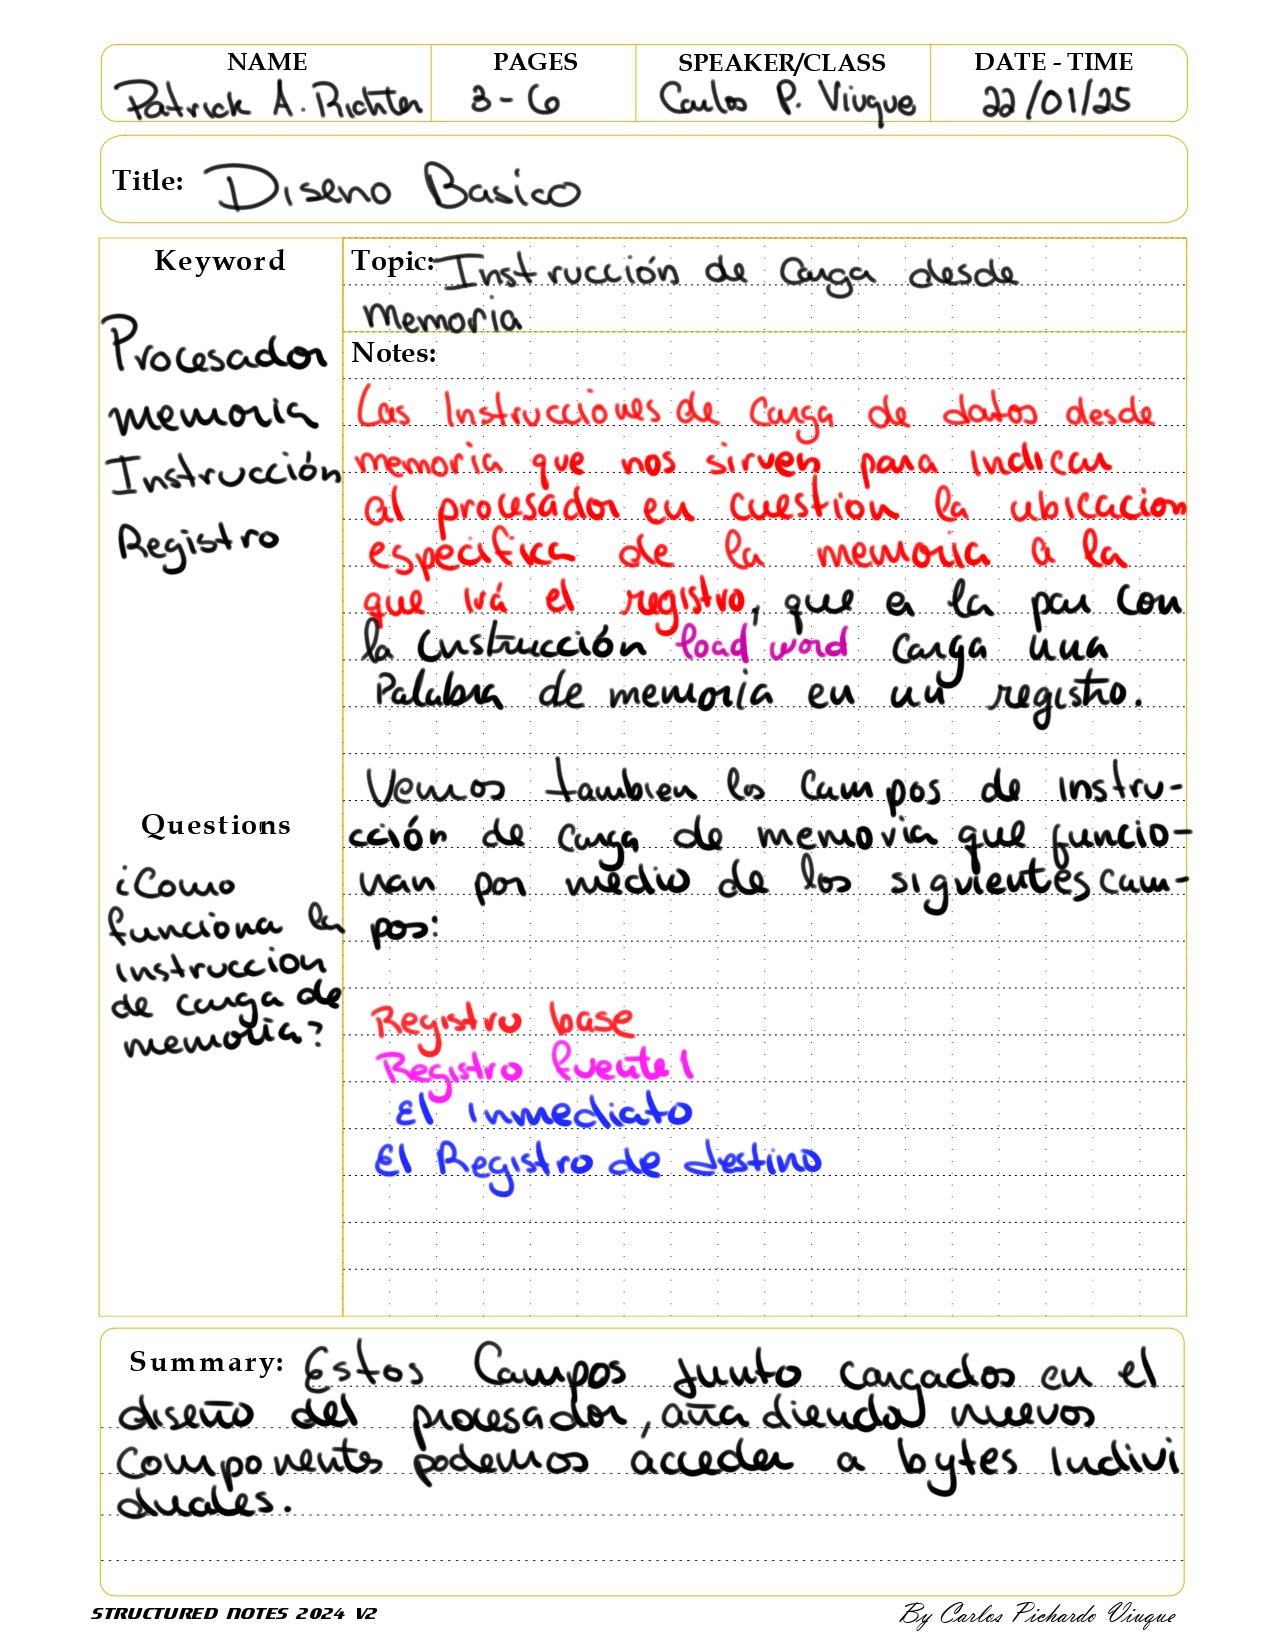 NAME PAGES SPEAKER/CLASS DATE - TIME
Patrick A. Richter 3-6 Carlos P. Viuque 22/01/25
Title: Diseno Basico
Keyword
Procesador
memoria
Instrucción
Registro
Questions
¿Como
funciona la
instruccion
de carga de
memoria?
Topic: Instrucción de Carga desde
Memoria
Notes:
Las Instrucciones de Carga de datos desde
memoria que nos sirven para Indicar
al procesador en cuestion la ubicacion
especifica de la memoria a la
que irá el registro, que a la par con
la Instrucción load word carga una
Palabra de memoria en un registro.
Vemos tambien los Campos de instru-
cción de carga de memoria que funcio-
nan por medio de los siguientes cam-
pos:
Registro base
Registro fuente 1
El inmediato
El Registro de destino
Summary: Estos Campos Junto cargados en el
diseño del procesador, añadiendo nuevos
Componentes podemos acceder a bytes Indivi
duales.
STRUCTURED NOTES 2024 V2
By Carlos Pichardo Viuque